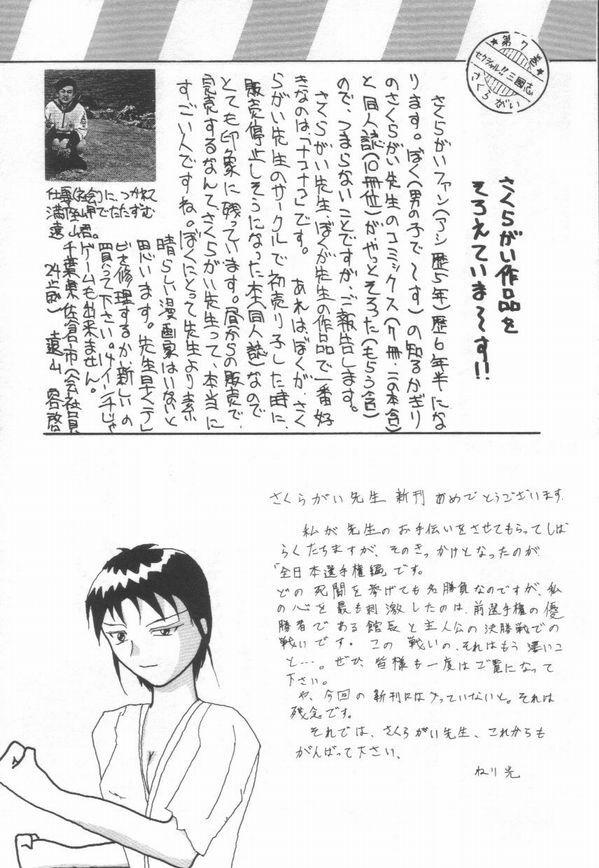 ★第7巻★
セクシャル!!三國志
さくらがい
さくらがい作品を
そろえていま〜す!!
さくらがいファン(アシ歴5年)歴6年半にな
ります。ぼく(男の子で〜す)の知るかぎり
のさくらがい先生のコミックス(7冊・二の本含)
と同人誌(10冊位)がやっとそろた(もらう含)
ので、つまらないことですが、ご報告します。
さくらがい先生、ぼくが先生の作品で一番好
きなのは、「ナコナコ」です。 あれはぼくが、さく
らがい先生のサークルで初売り子した時に、
販売停止しそうになった本(同人誌)なので
とても印象に残っています。昼からの販売で、
完売するなんて、さくらがい先生って、本当に
すごい人ですね。ぼくにとって先生より素
晴らしい漫画家はいないと
思います。先生早くテレ
ビを修理するか新しいの
買って下さい。14インチじゃ
ゲームも出来ません。
千葉県佐倉市(会社員
24歳) 遠山
仕事(会社)に、つかれて
満足山中でたたずむ
遠山君。
さくらがい先生 新刊 おめでとうございます。
私が先生のお手伝いをさせてもらってしば
らくたちますが、そのきっかけとなったのが
「全日本選手権編」です。
どの死闘を挙げても名勝負なのですが、私
の心を最も刺激したのは、前選手権の優
勝者である館長と主人公の決勝戦での
戦いです。この戦いの、それはもう凄いこ
と…。ぜひ皆様も一度はご覧になって
下さい。
や、今回の新刊には入っていないと。それは
残念です。
それでは、さくらがい先生、これからも
がんばって下さい、
ねり光